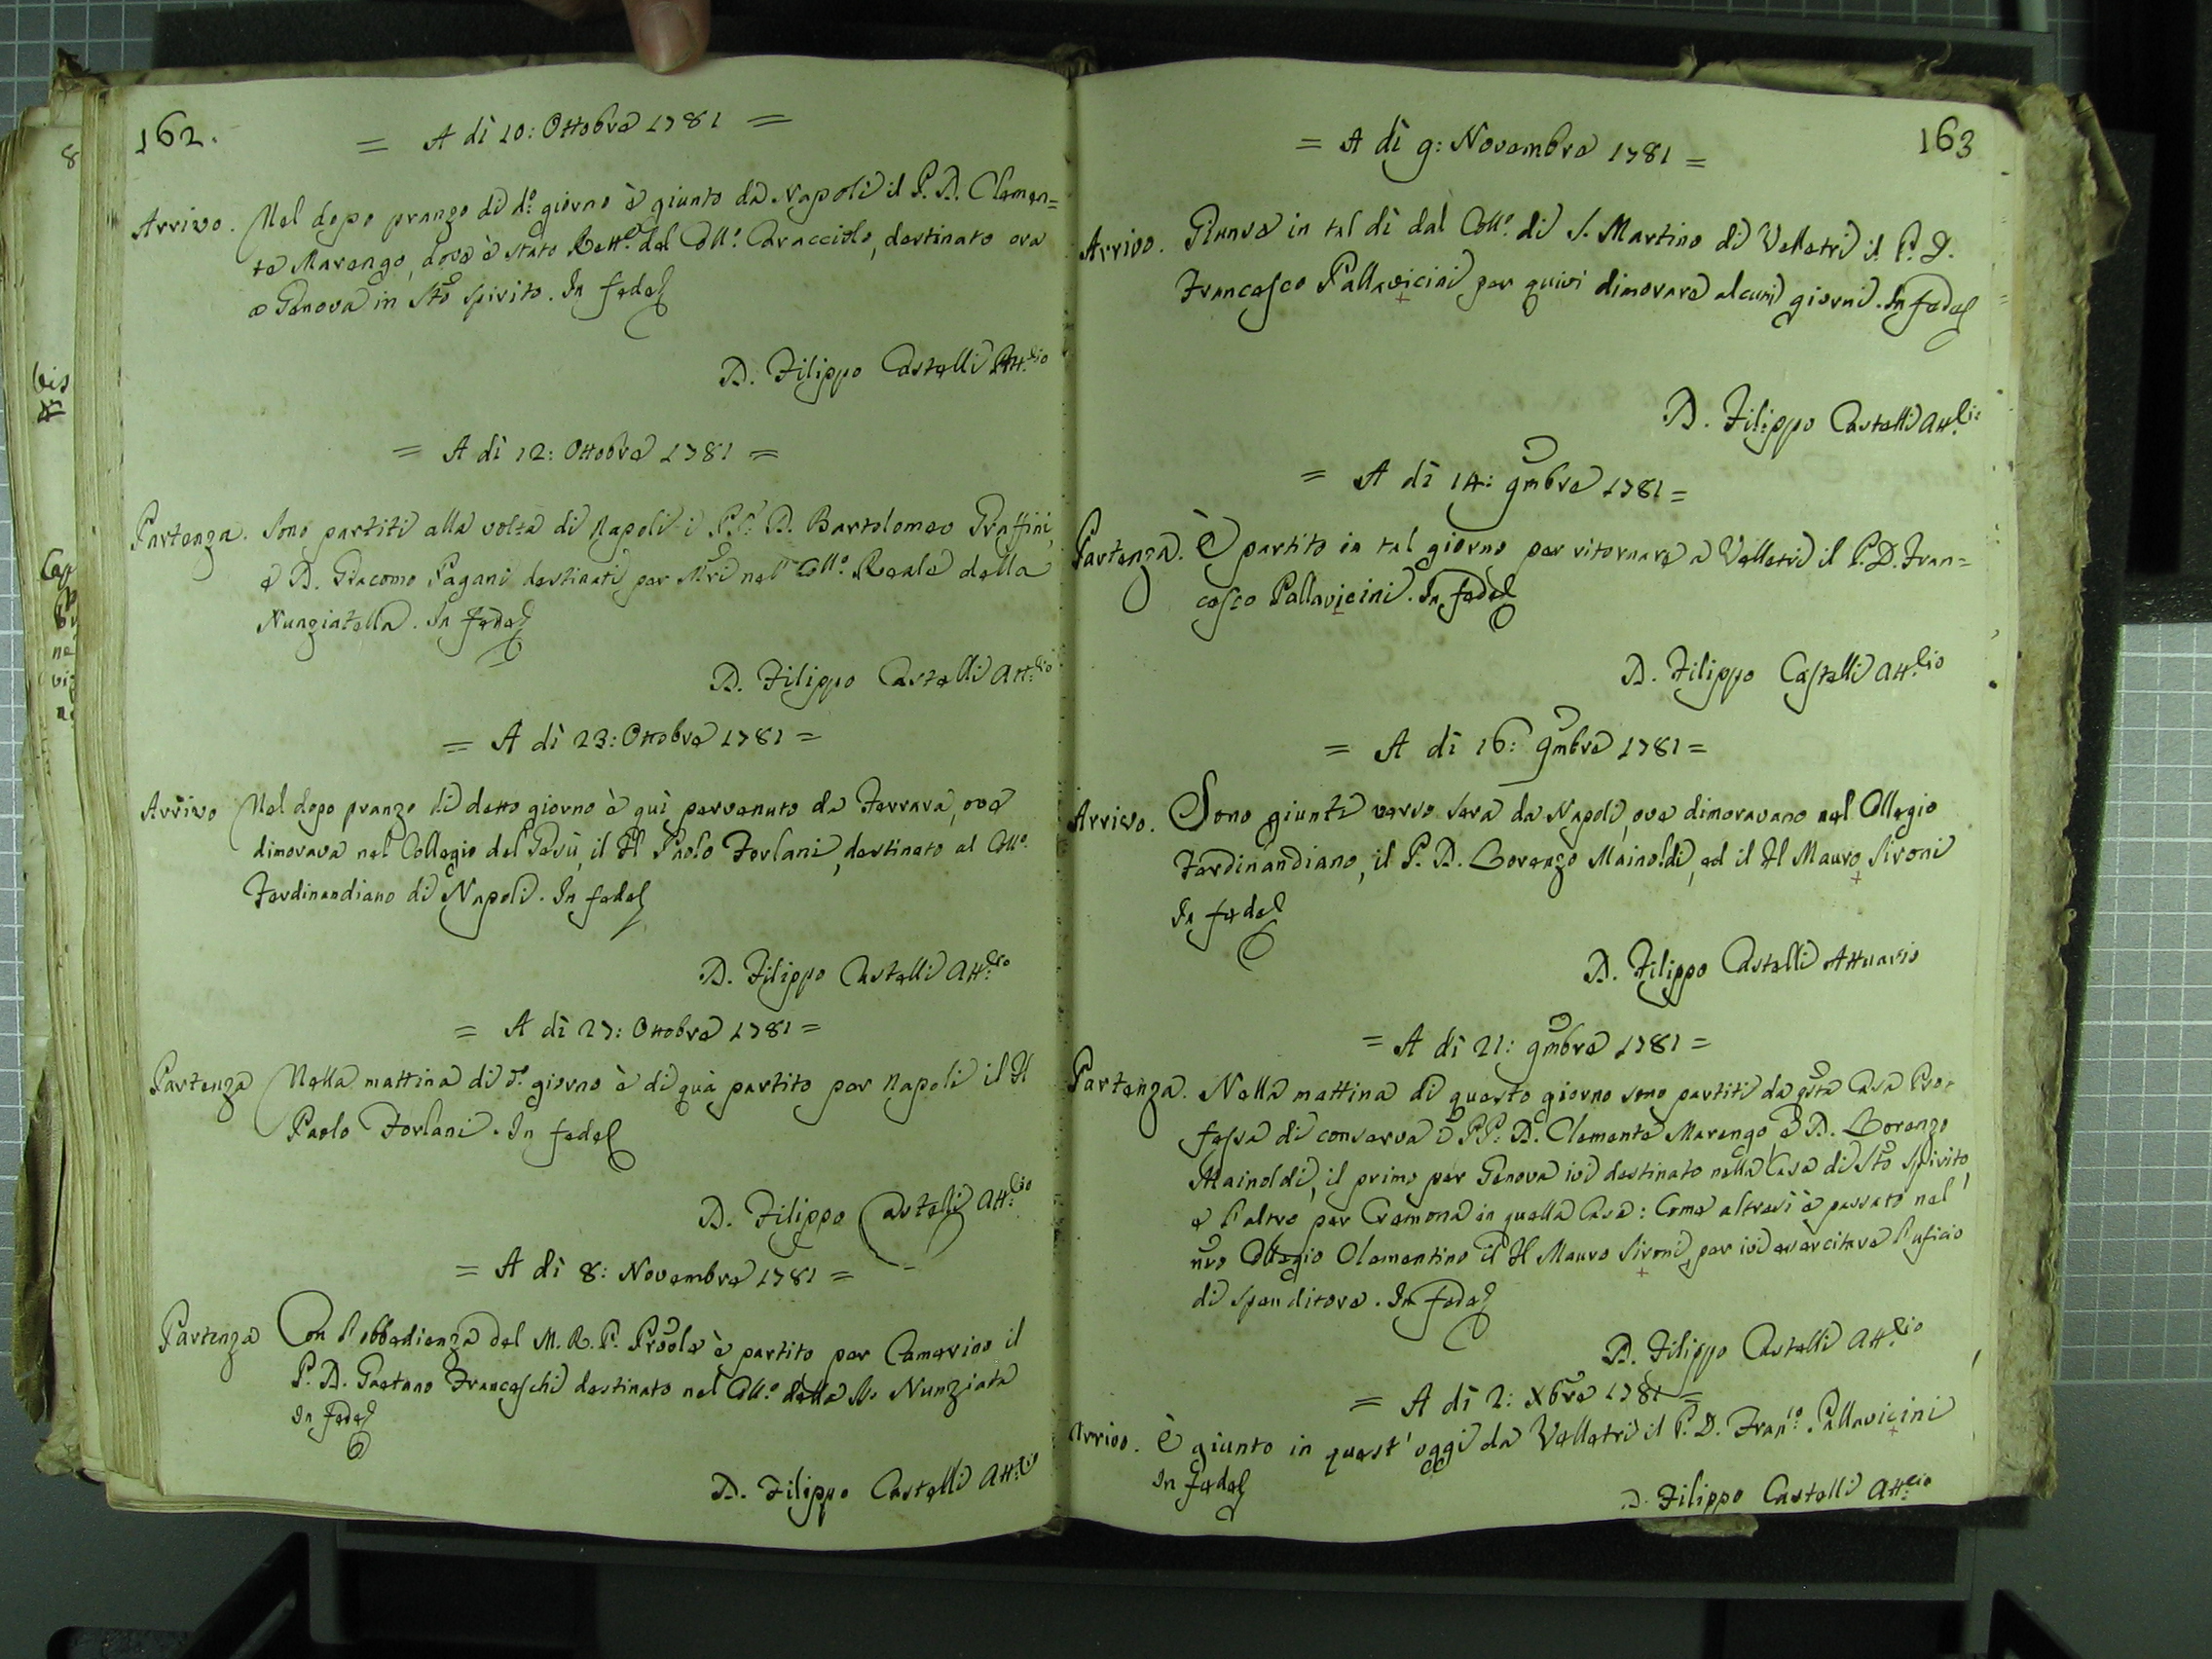 162.
= A di 10: Ottobre 1781 =
Arrivo. Nel dopo pranzo di d.º giorno è giunto da Napoli il P. D. Clemen=
te Marengo, dove è stato Rett.e del Coll.º Caracciolo, destinato ora
a Genova in Sto Spirito. In fede
D. Filippo Castelli Att.rio
= A di 12: Ottobre 1781 =
Partenza. Sono partiti alla volta di Napoli i PP. D. Bartolomeo Graffini,
e D. Giacomo Pagani destinati per Mri nel Coll.º Reale della
Nunziatella. In fede
D. Filippo Castelli Att.rio
= A di 23: Ottobre 1781 =
Arrivo Nel dopo pranzo di detto giorno è quì pervenuto da Ferrara, ove
dimorava nel Collegio del Gesù, il Fl Paolo Forlani, destinato al Coll.º
Ferdinandiano di Napoli. In fede
D. Filippo Castelli Att.rio
= A di 27: Ottobre 1781 =
Partenza Nella mattina di d.º giorno è di quà partito per Napoli il Fl
Paolo Forlani. In fede
D. Filippo Castelli Att.rio
= A di 8: Novembre 1781 =
Partenza Con l'obbedienza del M. R. P. Prople è partito per Camerino il
P. D. Gaetano Franceschi destinato nel Coll.º della SS. Nunziata
In fede
D. Filippo Castelli Att.rio
163
= A dì 9: Novembre 1781 =
Arrivo. Giunse in tal dì dal Coll.º di S. Martino di Velletri il P. D.
Francesco Pallavicini per quivi dimorare alcuni giorni. In fede
D. Filippo Castelli Att.rio
= A di 14: 9mbre 1781 =
Partenza. È partito in tal giorno per ritornare a Velletri il P. D. Fran=
cesco Pallavicini. In fede
D. Filippo Castelli Att.rio
= A di 16: 9mbre 1781 =
Arrivo. Sono giunti verso sera da Napoli, ove dimoravano nel Collegio
Ferdinandiano, il P. D. Lorenzo Mainoldi, ed il Fl Mauro Sironi
In fede
D. Filippo Castelli Attuario
= A di 21: 9mbre 1781 =
Partenza. Nella mattina di questo giorno sono partiti da qsta Casa Pro-
fessa di conserva i PP. D. Clemente Marengo, e D. Lorenzo
Mainoldi, il primo per Genova ivi destinato nella Casa di Sto Spirito,
e l'altro per Cremona in quella Casa: Come altresì è passato nel
nro Collegio Clementino il Fl Mauro Sironi, per ivi esercitare l'uficio
di spenditore. In fede
D. Filippo Castelli Att.rio
= A di 2: Xbre 1781 =
Arrivo. È giunto in quest'oggi da Velletri il P. D. Fran.co Pallavicini
In fede
D. Filippo Castelli Att.rio